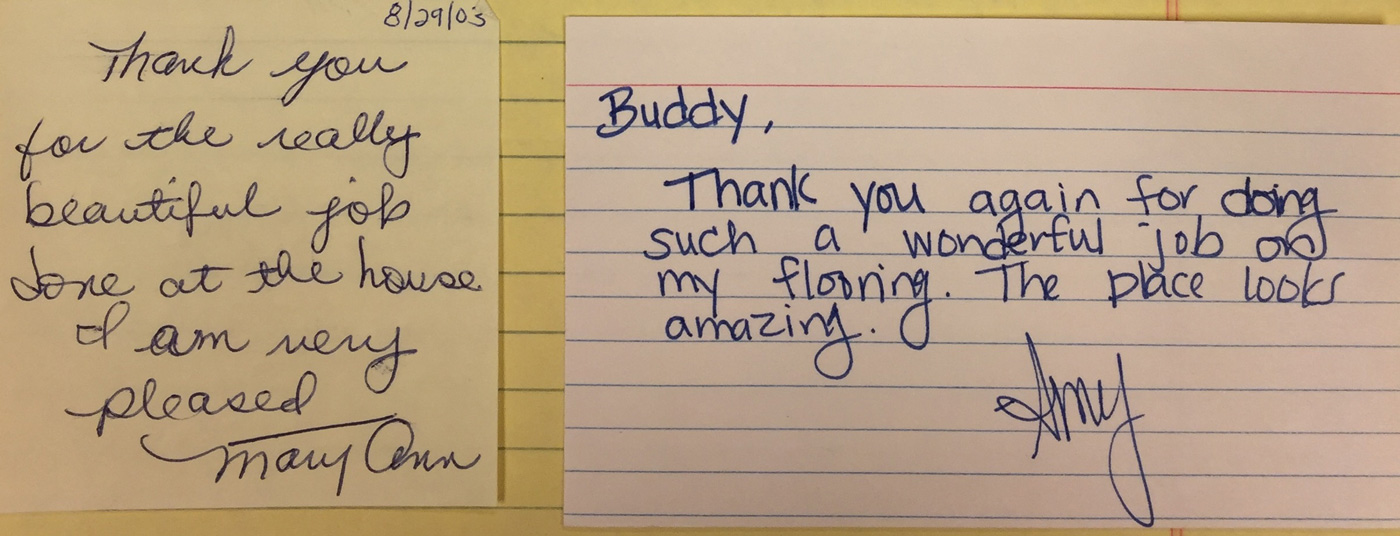 8/29/03
Thank you
for the really
beautiful job
done at the house
I am very
pleased
Mary Ann
Buddy,
Thank you again for doing
such a wonderful job on
my flooring. The place looks
amazing.
Amy